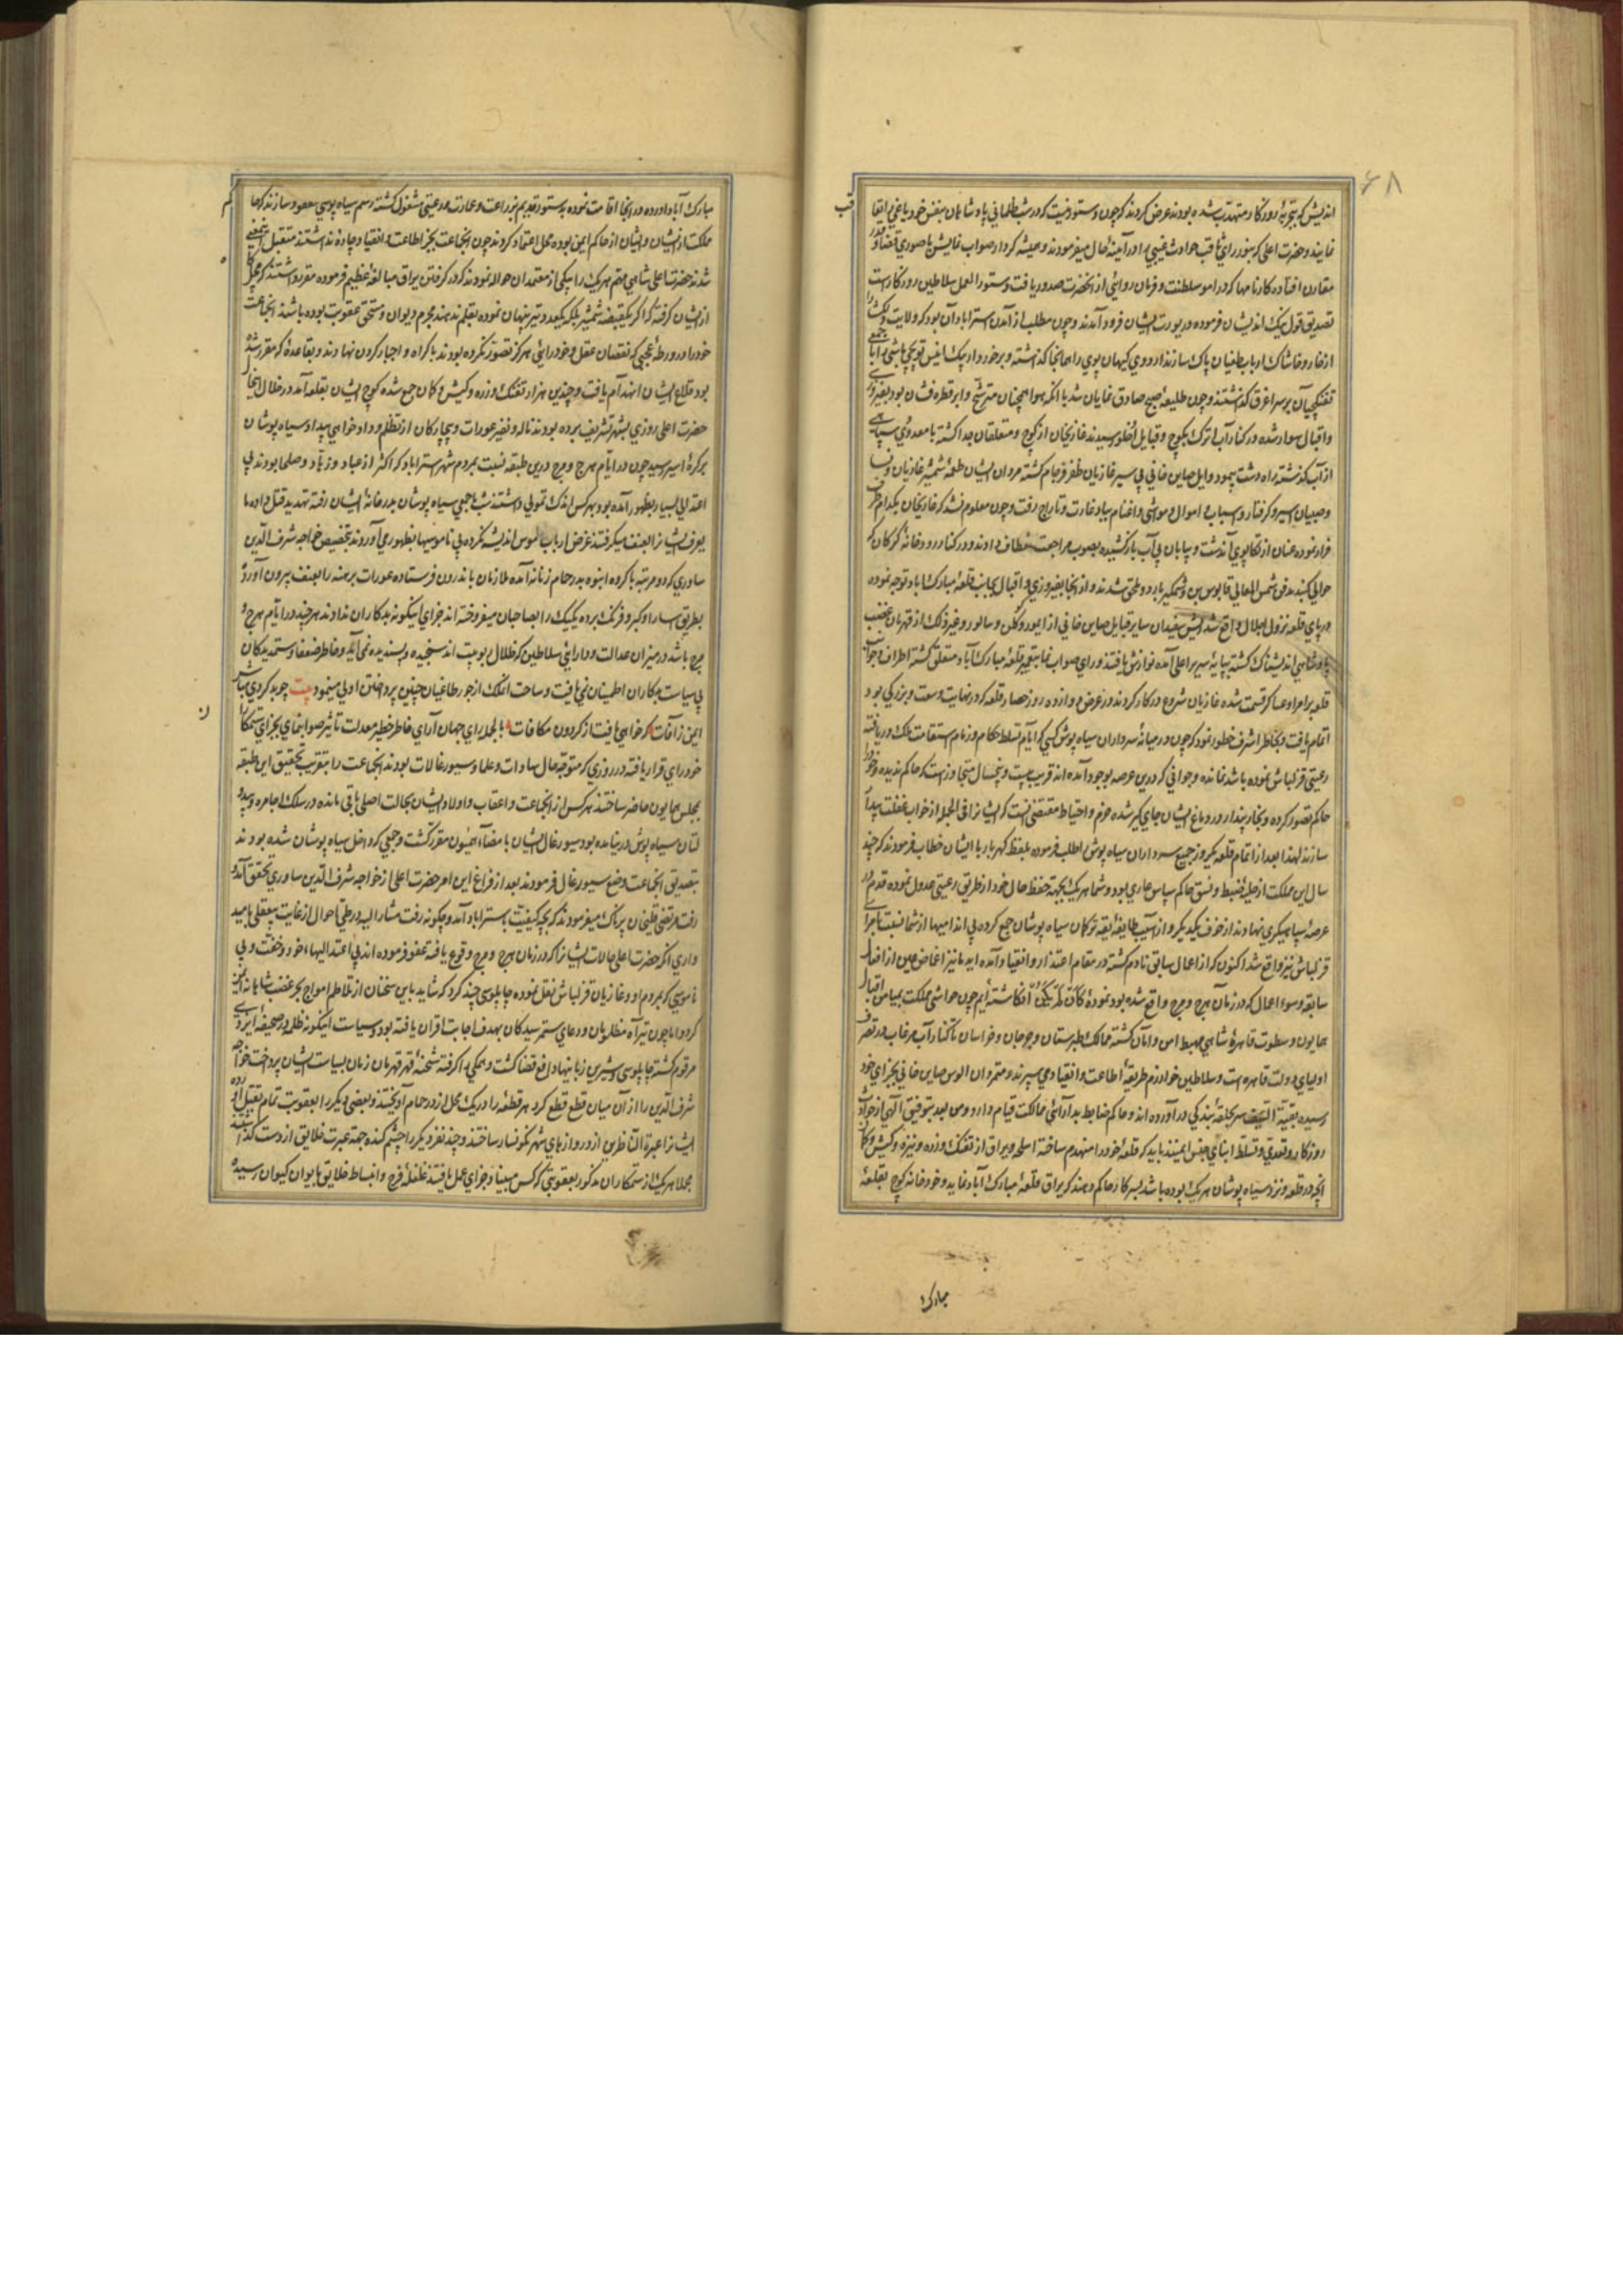 ۶۸
اندیش که بتجربهٔ روزگار مهذب شده بودند عرض کردند که چون دستور نیست که در شب ظلمانی پادشاهان بنفس خود یاغی
نمایند و حضرت اعلی که بنور رای ثاقب حوادث غیبی را در آیینهٔ حال میفرمودند و همیشه کردار صواب نمایش با صوری قضا و قدر
مقارن افتاده کارنامها که در امور سلطنت و فرمان روائی از آنحضرت صدور یافت دستور العمل سلاطین روزگار است
تصدیق قول نیک اندیشان فرموده در یورت ایشان فرود آمدند و چون مطلب از آمدن استراباد آن بود که ولایت
از خار و خاشاک ارباب طغیان پاک سازند اردوی کیهان پوی را همانجا گذاشته و برخوردار بیک انیس توپچی باشی را با
تفنگچیان بر سر اغرق گذاشتند و چون طلیعهٔ صبح صادق نمایان شد با آنکه هوا همچنان مترشح و ابر قطره فشان بود
و اقبال سوار شده در کنار آب اترک بکوچ و قبایل اخلو رسیدند غازیخان از کوچ و متعلقان جدا گشته با معدودی
از آب گذشته راه دشت پیمود و ایل صاین خانی پی سپر غازیان ظفر فرجام گشته مردان ایشان طعمهٔ شمشیر غازیان
و صبیان اسیر و گرفتار و اسباب و اموال و مواشی و اغنام بباد غارت و تاراج رفت و چون معلوم نشد که غازیخان بکدام طرف
فرار نموده عنان از تکاپوی آن دشت و بیابان بی آب بازکشیده بصوب مراجعت انعطاف دادند و در کنار رودخانهٔ گرگان که
حوالی گنبد مدفن شمس المعالی قابوس بن وشمگیر باردو ملحق شدند و از آنجا بفیروزی و اقبال بجانب قلعهٔ مبارک اباد توجه نموده
در پای قلعه نزول اجلال واقع شد ریش سفیدان سایر قبایل صاین خانی از ایمور و کوکلن و سالور و غیر ذلک از قهرمان غضب
پادشاهی اندیشناک گشته بپایهٔ سریر اعلی آمده نوازش یافتند و رای صواب نما بتعمیر قلعهٔ مبارک آباد متعلق گشته اطراف
قلعه بر امرا و عساکر قسمت شده غازیان شروع در کار کردند در عرض دوازده روز حصار قلعه که در نهایت وسعت و بزرگی بود
اتمام یافت و بخاطر اشرف خطور نمود که چون در میانهٔ سرداران سیاه پوش کسی که ایام تسلط حکام و زمام استقامت ملک دریافته
رعیتی قزلباش نموده باشد نمانده و جوانی که درین عرصه بوجود آمده اند قریب بیست و پنجسال متجاوز است که حاکم ندیده
حاکم تصور کرده و بخار پندار در دماغ ایشان جای گیر شده حزم و احتیاط مقتضی آنست که ایشانرا فی الجمله از خواب غفلت بیدار
سازند لهذا بعد از اتمام قلعه یکروز جمیع سرداران سیاه پوش را طلب فرموده بلفظ گهربار با ایشان خطاب فرمودند که چند
سال این مملکت از حلیهٔ ضبط و نسق حاکم سپاس عاری بود و شما هر یک بجهة حفظ حال خود از طریق رعیتی عدول نموده قدم در
عرصهٔ سپاهیگری نهادند از خوف یکدیگر و از آسیب طایفهٔ یقه ترکمان سیاه پوشان جمع کرده بی اندامیها از شما نسبت بامرای
قزلباش نیز واقع شد اکنون که از اعمال سابق نادم گشته در مقام اعتذار و انقیاد آمده اید ما نیز اغماض عین از افعال
سابقه و سوء اعمال که در زمان هرج و مرج واقع شده بود نموده کَأَن لَّم یَکُن انگاشته ایم چون حواشی مملکت بمیامن اقبال
همایون و سطوت قاهرهٔ شاهی مهبط امن و امان گشته ممالک طبرستان و جرجان و خراسان تا کنار آب مرغاب در تصرف
اولیای دولت قاهره است و سلاطین خوارزم طریقهٔ اطاعت و انقیاد می سپرند و متمردان الوس صاین خانی بجزای خود
رسیده بقیة السیف سر بحلقهٔ بندگی درآورده اند و حاکم ضابط بدارائی ممالکت قیام دارد و من بعد بتوفیق الهی از حوادث
روزگار و تعدی و تسلط ابنای جنس ایمنند باید که قلعهٔ خود را منهدم ساخته اسلحه و یراق از تفنگ و زره و نیزه و کیش و کمان
آنچه در قلعه و نزد سیاه پوشان هر یک بوده باشد بسرکار حاکم دهند که یراق قلعهٔ مبارک آباد نماید و خود خانه کوچ بقلعهٔ
مبارک
مبارک آباد آورده در آنجا اقامت نموده بدستور قدیم بزراعت و عمارت و رعیتی مشغول گشته رسم سیاه پوشی مفقود سازند که
مملکت از ایشان و ایشان از حاکم ایمن بوده محل اعتماد گردند چون آنجماعت بجز اطاعت و انقیاد چاره نداشتند متقبل
شدند حضرت اعلی شاهی مهم هر یک را بیکی از معتمدان حواله نمودند که در گرفتن یراق مبالغهٔ عظیم فرموده مقرر داشتند که
از ایشان گرفته که اگر یکقبضه شمشیر بلکه یکعدد تیر پنهان نموده بقلم ندهند مجرم دیوان و مستحق عقوبت بوده باشند آنجماعت
خود را در ورطهٔ عجبی که نقصان عقل و خودرائی هرگز تصور نکرده بودند باکراه و اجبار گردن نهادند و بقاعدهٔ که مقرر شده
بود قلاع ایشان انهدام یافت و چندین هزار تفنگ و زره و کیش و کمان جمع شده کوچ ایشان بقلعه آمد در خلال
حضرت اعلی روزی بشهر تشریف برده بودند ناله و نفیر عورات و بیچارگان از تظلم و دادخواهی بیداد سیاه پوشان
بر کرهٔ اسیر رسید چون در ایام هرج و مرج درین طبقه نسبت بمردم شهر استراباد که اکثر از عباد و زهاد و صلحا بودند بی
اعتدالی بسیار بظهور آمده بود بهر کس اندک تمولی داشتند شب با جمعی سیاه پوشان بدر خانهٔ ایشان رفته تهدید قتل داده ما
یعرف ایشانرا بعنف میگرفتند عرض ارباب ناموس اندیشه نکرده بی ناموسیها بظهور می آوردند بتخصیص خواجه شرف الدین
ساوری که دو مرتبه با گروه انبوه بدر حمام زنانه آمده ملازمان باندرون فرستاده عورات برهنه را بعنف بیرون آورده
بطریق اسارا و گبر و فرنگ برده یک یک را بصاحبان میفروخته اند جزای اینگونه بدکاران ندادند هر چند در ایام هرج و
مرج باشد در میزان عدالت و دارائی سلاطین که ظلال ربوبیت اند سنجیده و پسندیده نمی آید و خاطر ضعفا و ستمدیدگان
بی سیاست بدکاران اطمینان نمی یافت و ساحت الملک از جور طاغیان چنین پرداختن اولی مینمود بیت چو بد کردی مباش
ایمن ز آفات که خواهی یافت از گردون مکافات بالجمله رای جهان آرای خاطر خطیر معدلت تاثیر صوابنمای بجزای ستمکاران
خودرای قرار یافته در روزی که متوجه حال سادات و علما و سیورغالات بودند آنجماعت را بتقریب تحقیق این طبقه
بمجلس همایون حاضر ساختند هر کس از آنجماعت و اعقاب و اولاد ایشان بحالت اصلی باقی مانده در سلک
لتان سیاه پوش درنیامده بود سیورغال ایشان بامضاء همیون مقرر گشت و جمعی که داخل سیاه پوشان شده بودند
بتصدیق آنجماعت وضع سیورغال فرمودند بعد از فراغ این امر حضرت اعلی از خواجه شرف الدین ساوری تحقق
رفت مرتضی قلیخان پرناک میفرمودند که بچه کیفیت باستراباد آمد و چگونه رفت مشارالیه در طی احوال از غایت بیعقلی بامید
واری آنکه حضرت اعلی حالات ایشانرا که در زمان هرج و مرج وقوع یافته عفو فرموده اند بی اعتدالیهاء خود و خفت و بی
ناموسی که بمردم او و غازیان قزلباش نقل نموده چاپلوسی چند کرد که شاید باین سخنان از تلاطم امواج بحر غضب شاهانه ایمن
گردد اما چون تیر آه مظلومان و دعای ستمرسیدگان بهدف اجابت اقران یافته بود و سیاست اینگونه ظلمه در صحیفهٔ
مرقوم گشته چاپلوسی و شیرین زبانیها دافع قضا نگشت و همگی را گرفته شحنهٔ قهر قهرمان زمان بسیاست ایشان پرداخت
شرف الدین را از آن میان قطع قطع کرد هر قطعه را در یک محل از در حمام آویختند و بعضی دیگر را بعقوبت تمام بقتل آورده
ایشانرا عبرة للناظرین از دروازهای شهر نگونسار ساختند و چند نفر دیگر را چشم کنده جهة عبرت خلایق از دست
مجملا هر یک از ستمکاران مذکور بعقوبتی که کس مبیناد جزای عمل یافتند غلغلهٔ فرح و انبساط خلایق بایوان کیوان رسیده